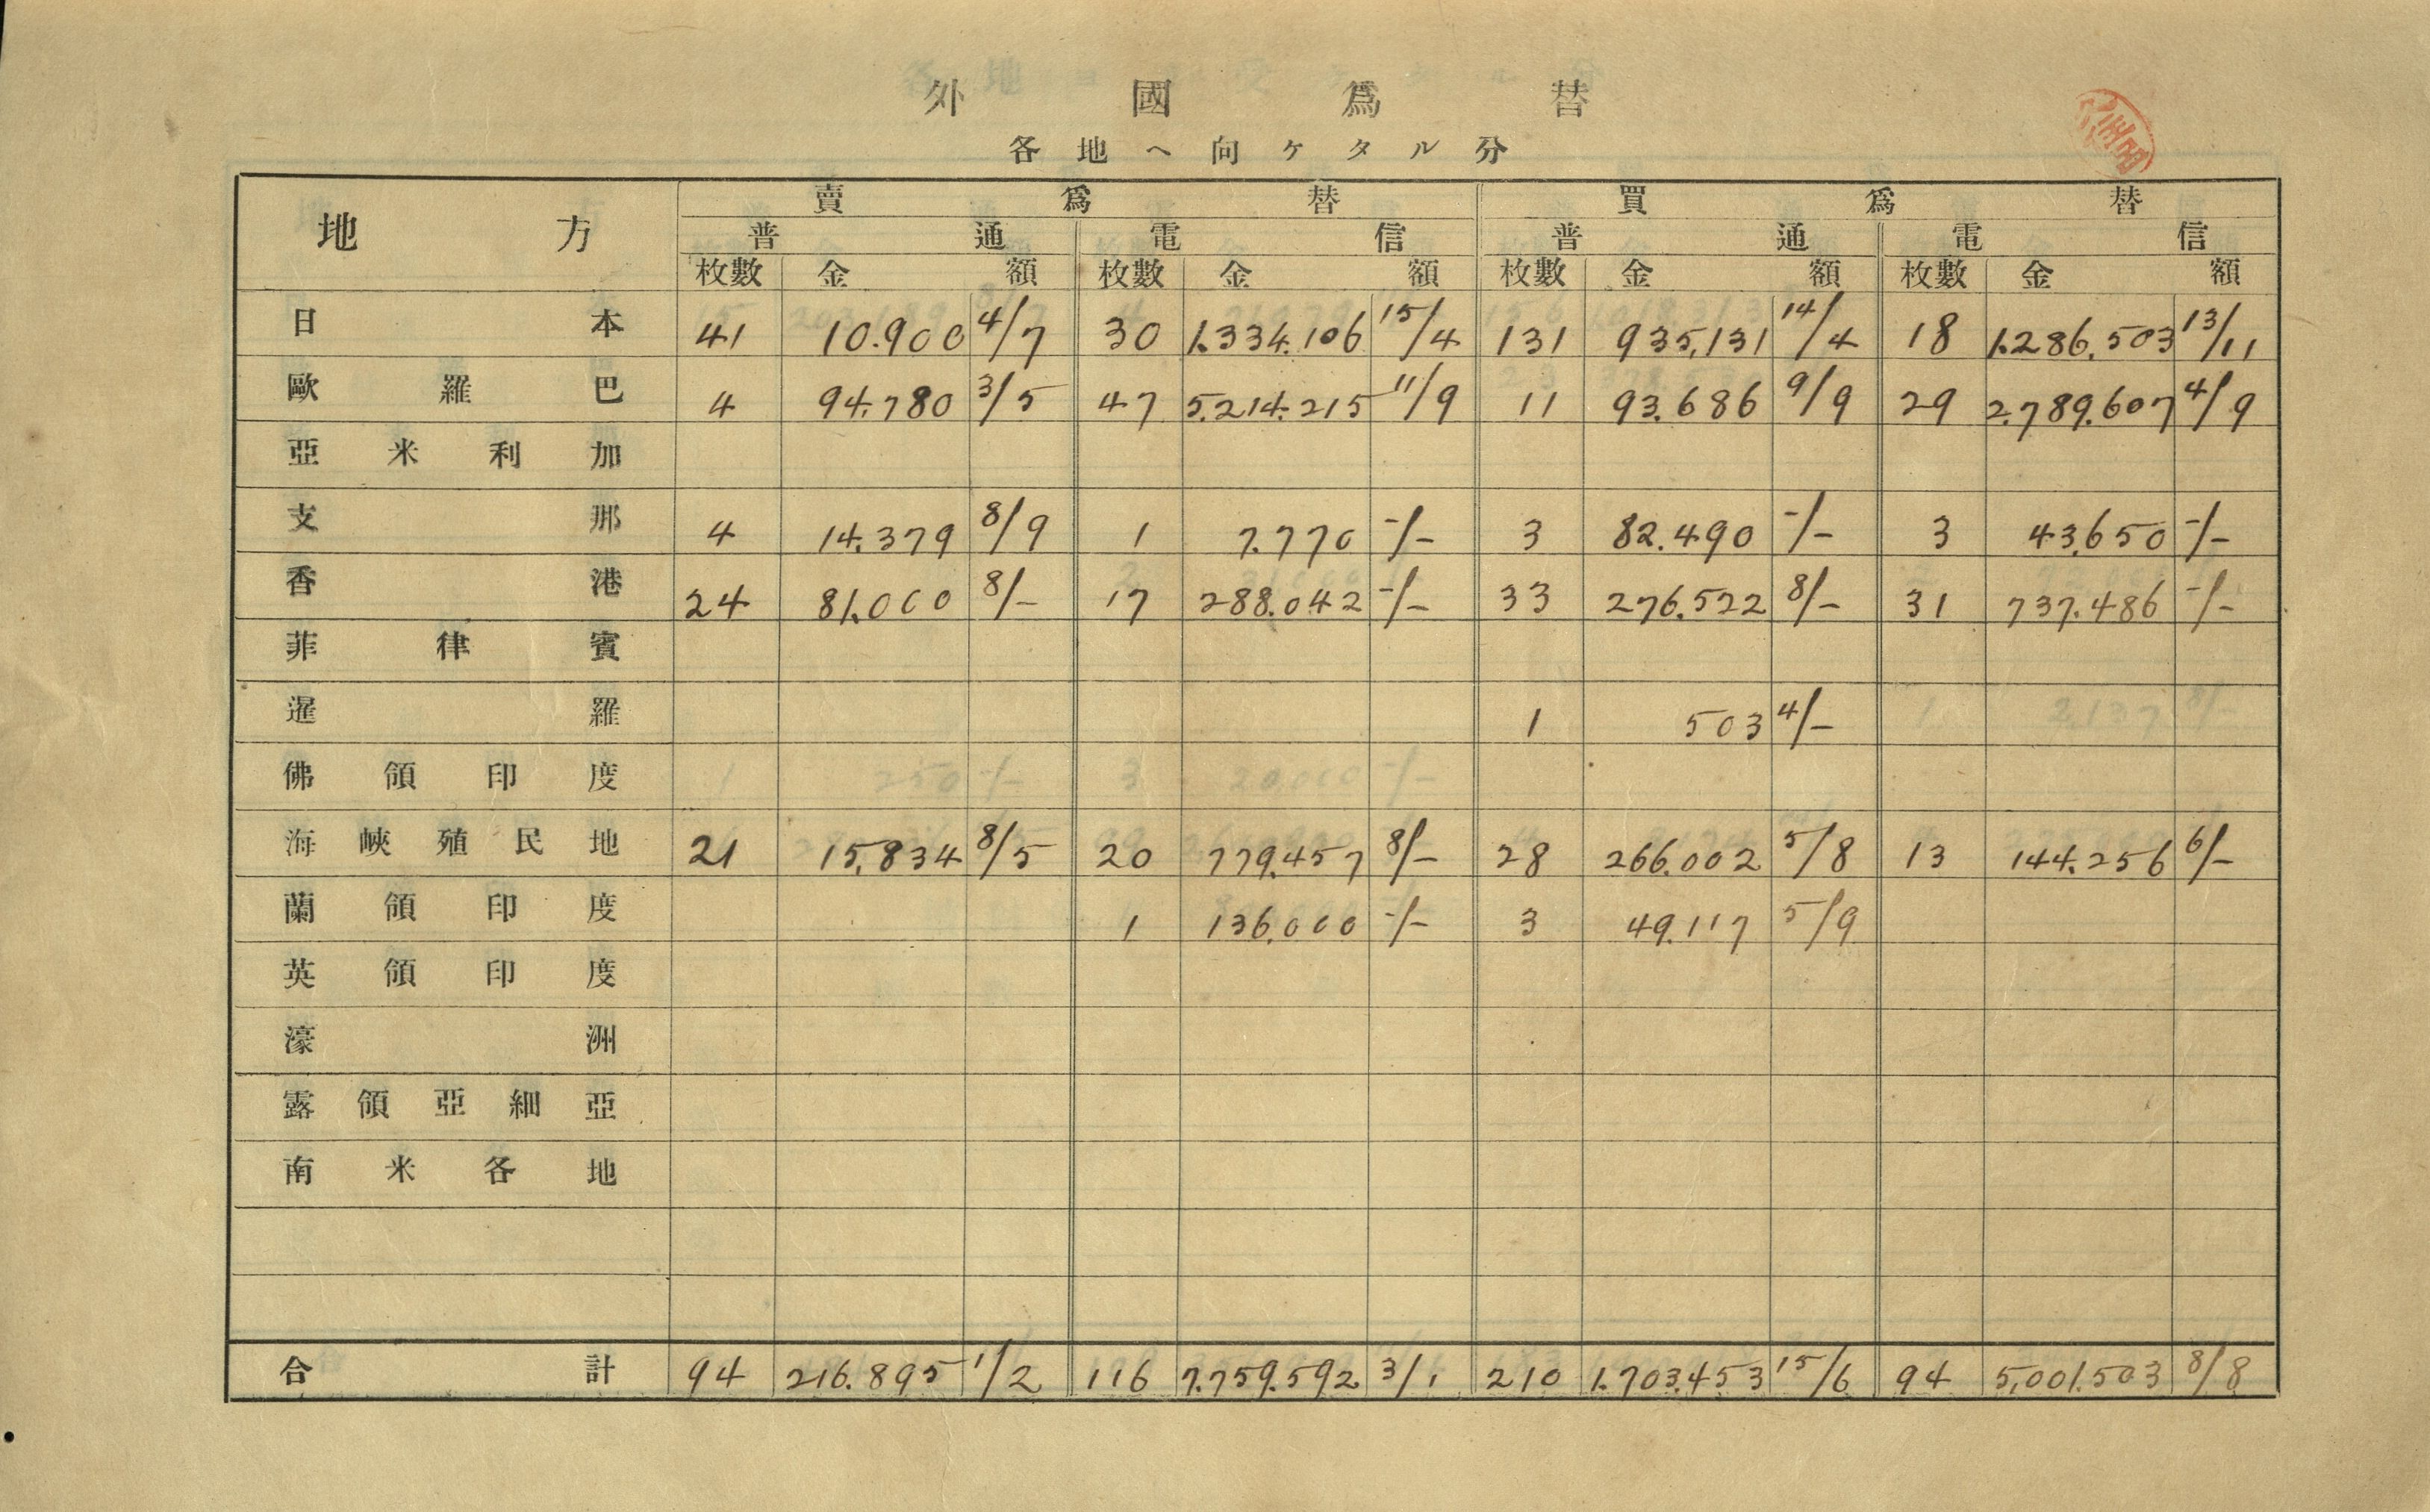 外國爲替
各地ヘ向ケタル分
地方 賣爲替 買爲替
普通 電信 普通 電信
枚數 金額 枚數 金額 枚數 金額 枚數 金額
日本 41 10.900 4/7 30 1.334.106 15/4 131 935,131 14/4 18 1.286.503 13/11
歐羅巴 4 94.780 3/5 47 5.214.215 11/9 11 93.686 9/9 29 2.789.607 4/9
亞米利加
支那 4 14.379 8/9 1 7.770 -/- 3 82.490 -/- 3 43.650 -/-
香港 24 81.000 8/- 17 288.042 -/- 33 276.522 8/- 31 737.486 -/-
菲律賓
暹羅 1 503 4/-
佛領印度
海峽殖民地 21 15.834 8/5 20 779.457 8/- 28 266.002 5/8 13 144.256 6/-
蘭領印度 1 136.000 -/- 3 49.117 5/9
英領印度
濠洲
露領亞細亞
南米各地
合計 94 216.895 1/2 116 7.759.592 3/1 210 1.703.453 15/6 94 5,001.503 8/8